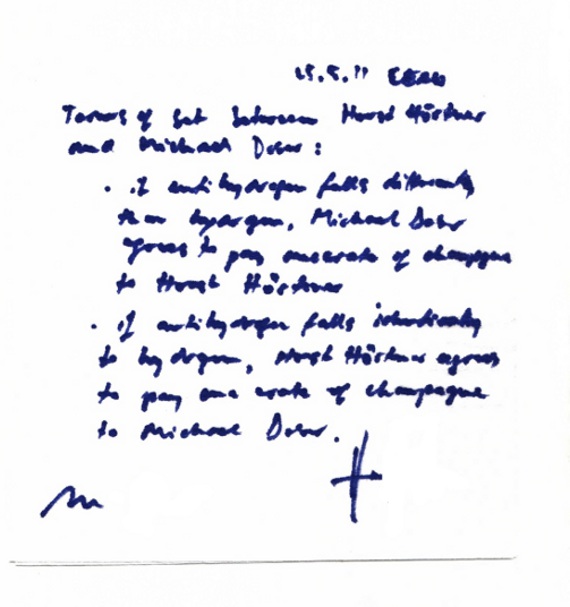 25.5.11 CERN
Terms of bet between Horst Hörtner
and Michael Doser:
· if antihydrogen falls differently
than hydrogen, Michael Doser
agrees to pay one crate of champagne
to Horst Hörtner
· if antihydrogen falls identically
to hydrogen, Horst Hörtner agrees
to pay one crate of champagne
to Michael Doser.